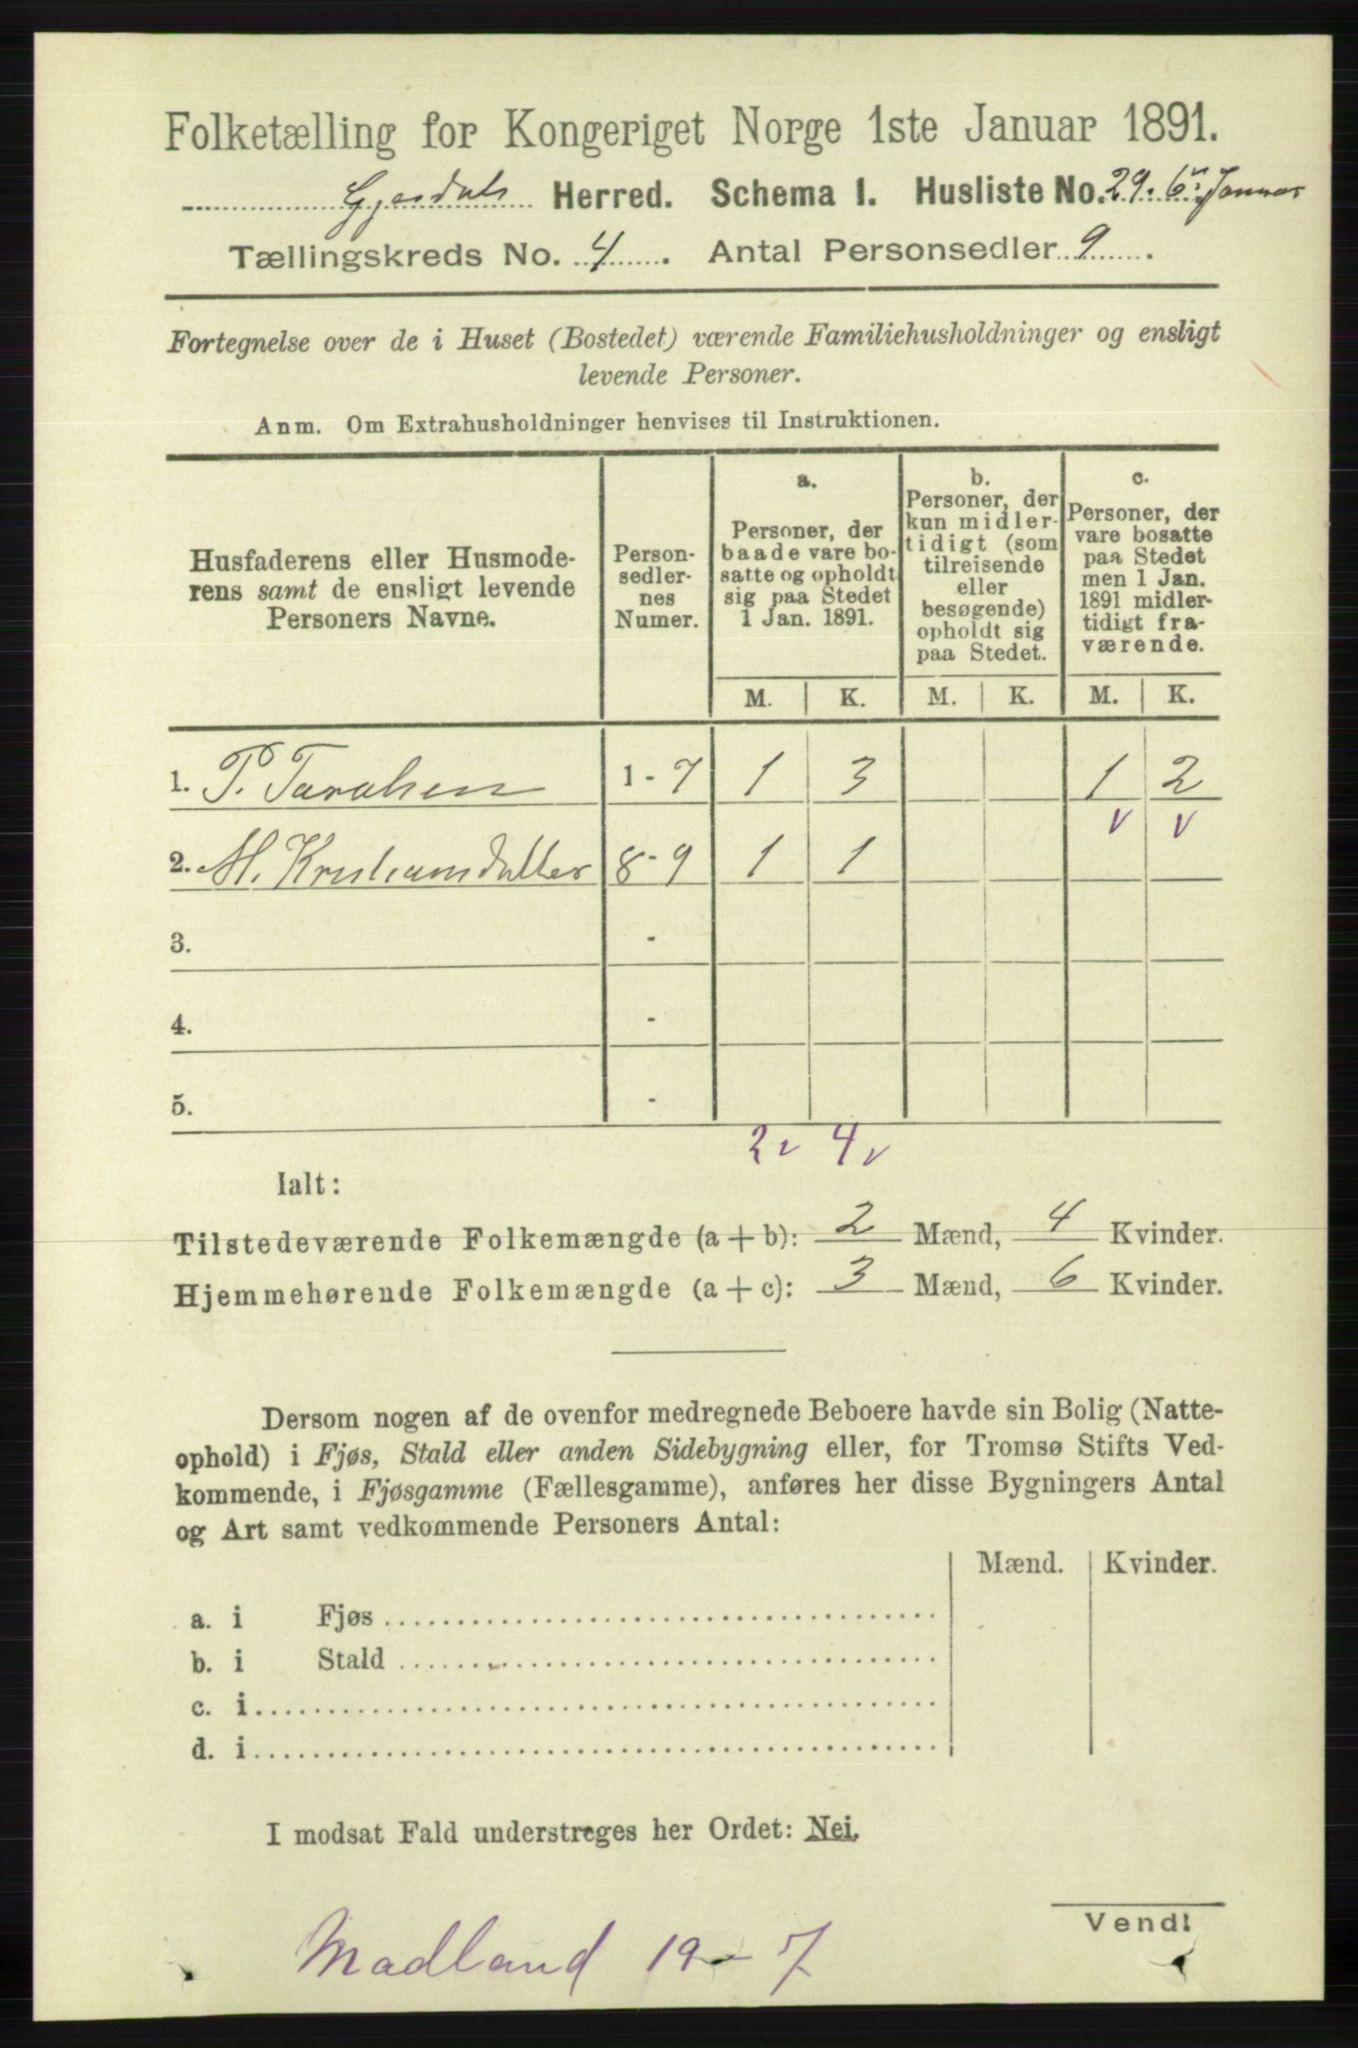 Folketælling for Kongeriget Norge 1ste Januar 1891.
Gjesdals Herred. Schema 1. Husliste No. 29. 6te Januar
Tællingskreds No. 4. Antal Personsedler 9.
Fortegnelse over de i Huset (Bostedet) værende Familiehusholdninger og ensligt
levende Personer.
Anm. Om Extrahusholdninger henvises til Instruktionen.
Husfaderens eller Husmoderens
samt de ensligt levende
Personers Navne.
Person-
sedler-
nes
Numer.
a.
Personer, der
baade vare bo-
satte og opholdt
sig paa Stedet
1 Jan. 1891.
b.
Personer, der
kun midler-
tidigt (som
tilreisende
eller
besøgende)
opholdt sig
paa Stedet.
c.
Personer, der
vare bosatte
paa Stedet
men 1 Jan.
1891 midler-
tidigt fra-
værende.
M. K. M. K. M. K.
1. P. 1 - 7 1 3 1 2
v v
2. M. 8 - 9 1 1
3. -
4. -
5. -
2 v 4 v
Ialt:
Tilstedeværende Folkemængde (a + b): 2 Mænd, 4 Kvinder.
Hjemmehørende Folkemængde (a + c): 3 Mænd, 6 Kvinder.
Dersom nogen af de ovenfor medregnede Beboere havde sin Bolig (Natte-
ophold) i Fjøs, Stald eller anden Sidebygning eller, for Tromsø Stifts Ved-
kommende, i Fjøsgamme (Fællesgamme), anføres her disse Bygningers Antal
og Art samt vedkommende Personers Antal:
Mænd. Kvinder.
a. i Fjøs
b. i Stald
c. i
d. i
I modsat Fald understreges her Ordet: Nei.
Vend!
Madland 19 - 7